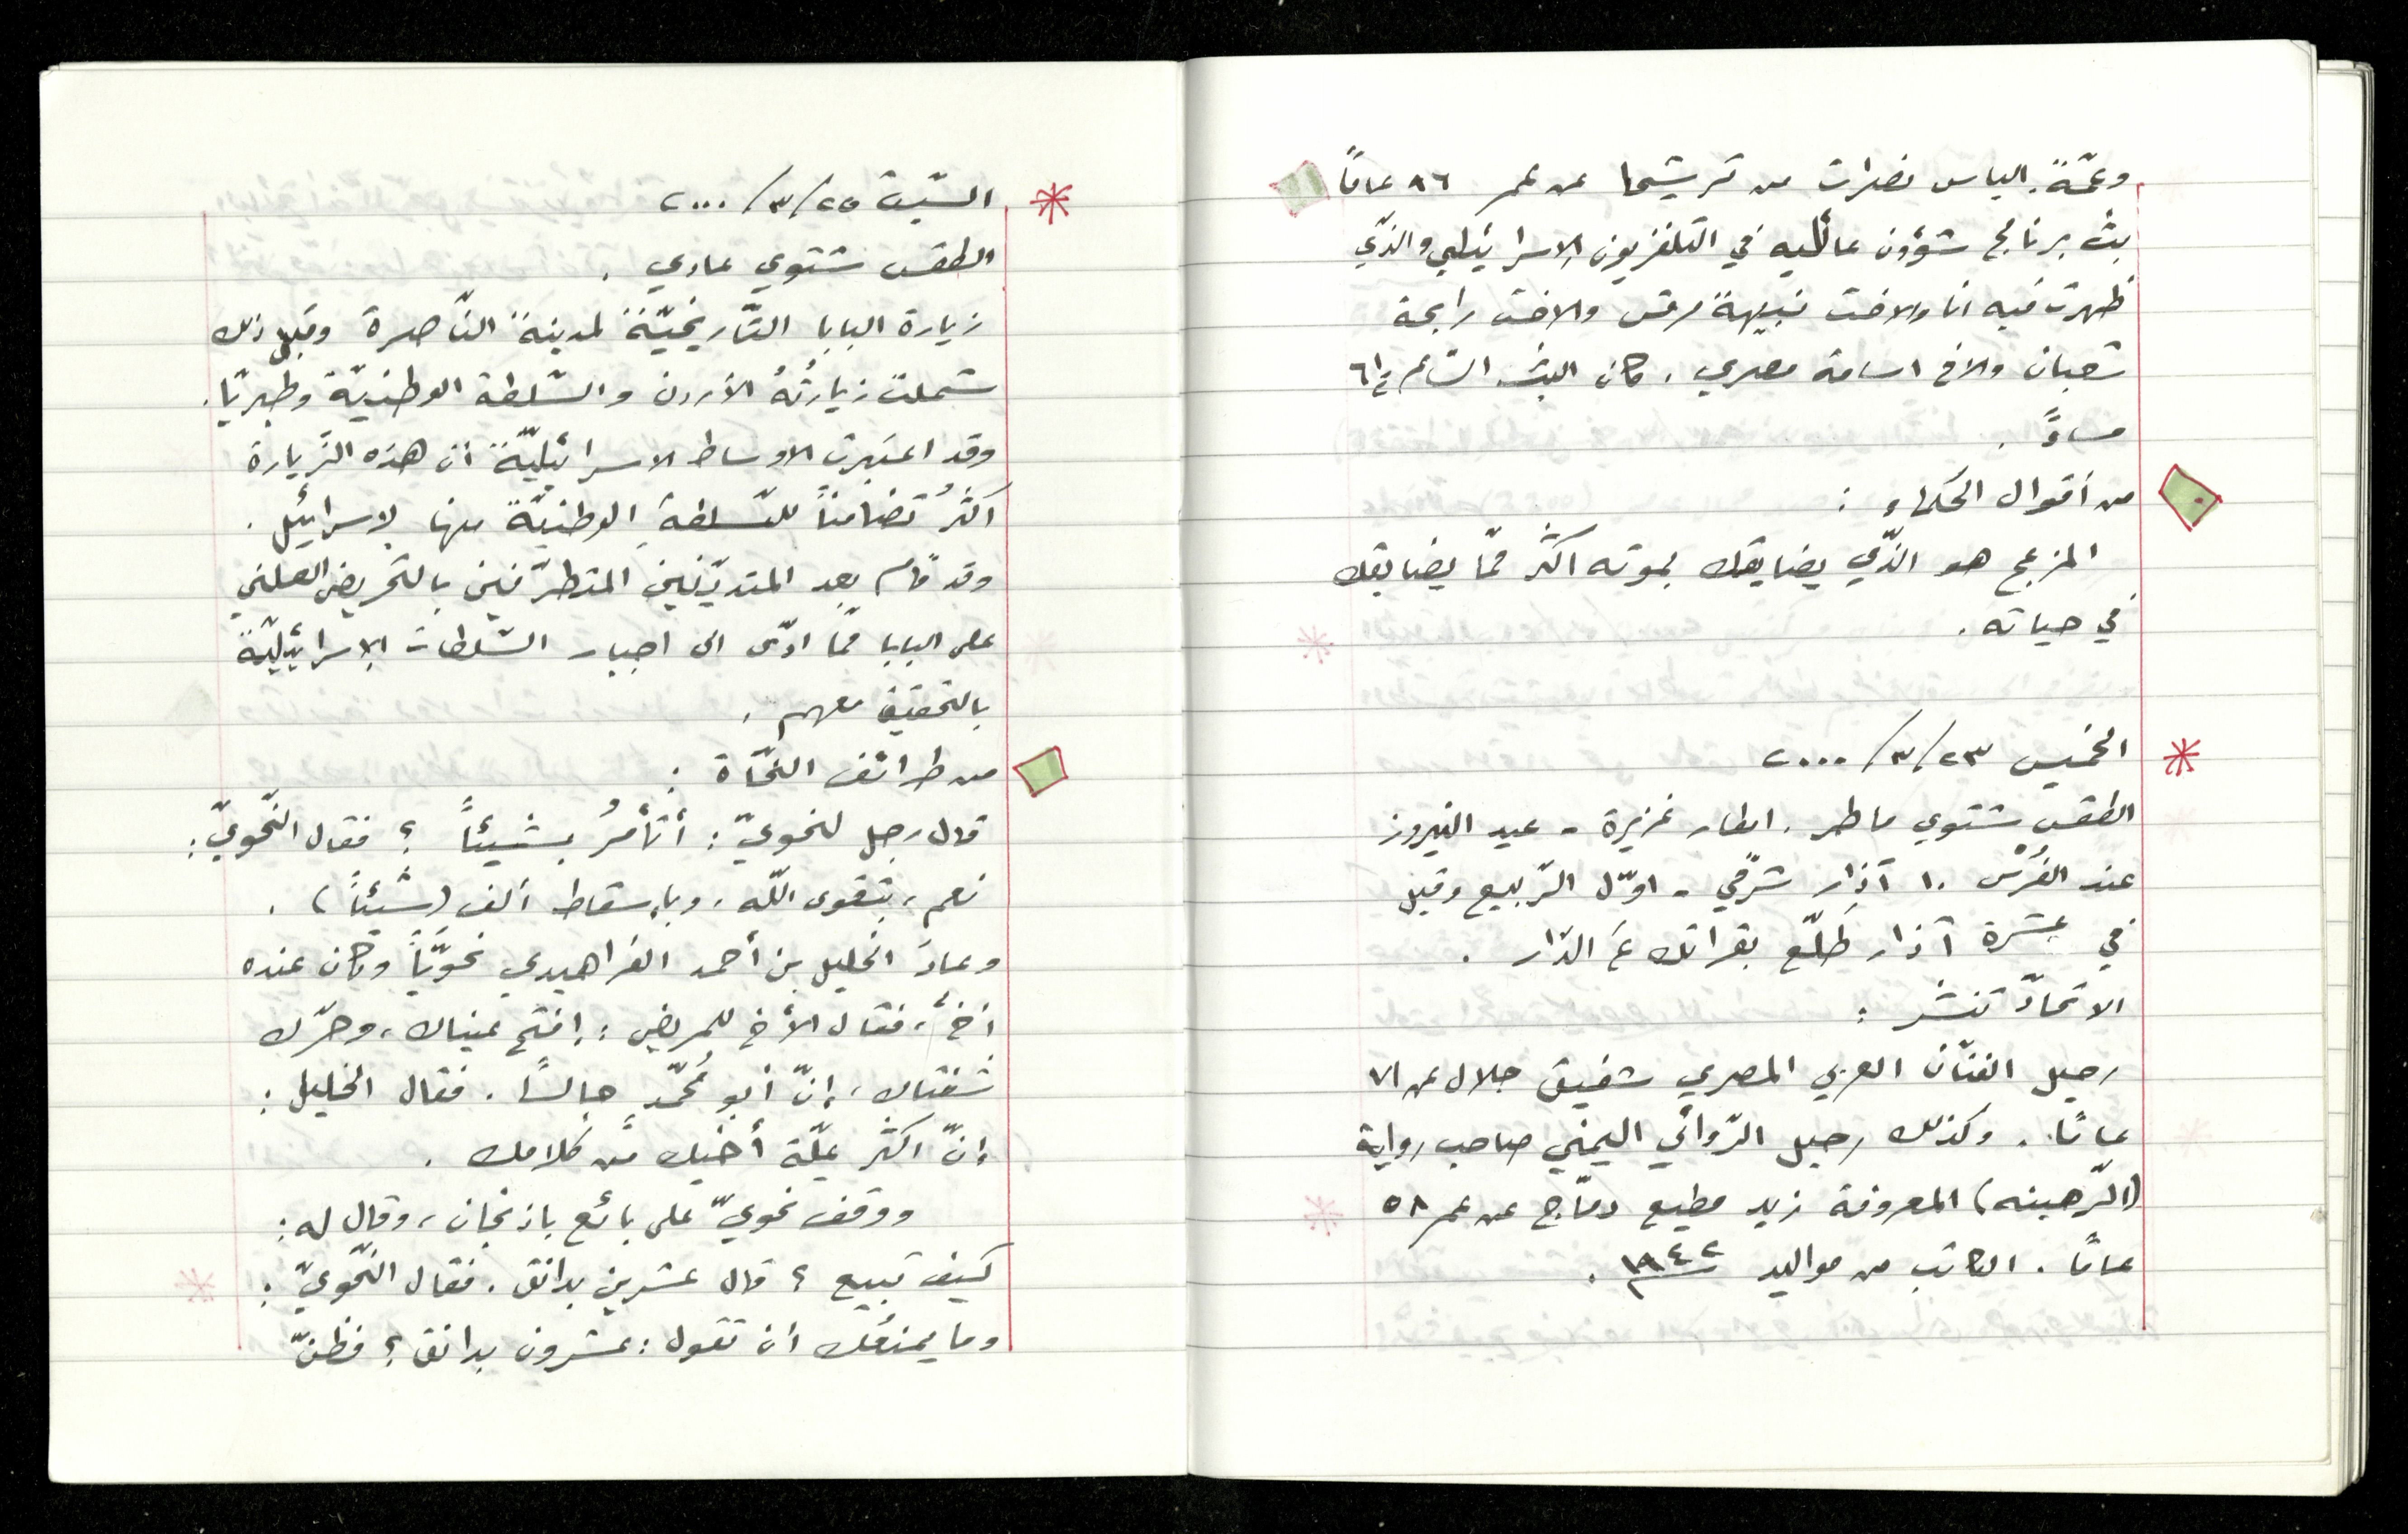 وعمّة الياس نصرات من ترشيحا عن عمر ٨٦ عاماً
بث برنامج شؤون عائليه في التلفزيون الإسرائيلي والذّي
ظهرت فيه انا والاخت نبيهة مرقس والاخت رابحة
شعبان والاخ اسامة مصري . كان البث السّاعة ٦١
مساءً .
من أقوال الحكماء :
المزعج هو الذّي يضايقك بموته اكثر ممّا يضايقك
في حياته .
الخميس ٢٣/٣/٢٠٠٠
الطقس شتوي ماطر . امطار غزيرة - عيد النيروز
عند الفُرْس ١٠ آذار شرقي - اوّل الرّبيع وقيل
في عشرة آذار طلّع بقراتك عَ الدّار .
الاتّحاد تنشر :
رحيل الفنّان العربي المصري شفيق جلال عن ٧١
عامًا . وكذلك رحيل الرّوائي اليمني صاحب رواية
(الرّهينه) المعروفة زيد مطيع دمّاج عن عمر ٥٨
عامًا . الكاتب من مواليد ١٩٤٢ .
السّبت ٢٥/٣/٢٠٠٠
الطقس شتوي عادي .
زيارة البابا التّاريخيّة لمدينة النّاصرة وقبل ذلك
شملت زيارتُهُ الأردن والسّلطة الوطنيّة وطبريّا .
وقد اعتبرت الاوساط الاسرائيليّة أن هذه الزّيارة
اكثرُ تضامناً للسّلطةِ الوطنيّة منها لإسرائيل .
وقد قام بعد المتديّنين المتطرّفين بالتحريض العلني
على البابا ممّا ادّى الى اجبار السّلطات الإسرائيليّة
بالتحقيق معهم .
من طرائف النّحاة :
قال رجل لنحويّ : أتأمرُ بشيئاً ؟ فقال النّحويّ :
نعم ، بتقوى اللّه ، وبإسقاط ألف (شيئاً) .
وعادَ الخليل بن أحمد الفراهيدي نحويّاً وكان عنده
اخٌ ، فقال الأخ للمريض : إفتح عيناك ، وحرّك
شفتاك ، إنّ أبو مُحمّد جالسًا . فقال الخليل :
إنّ اكثر علّة أخيك من كلامك .
ووقف نحويّ على بائع باذنجان ، وقال له :
كيف تبيع ؟ قال عشرين بدانق . فقال النّحويّ :
وما يمنعُك أن تقول : عشرون بدانق ؟ فظنّ